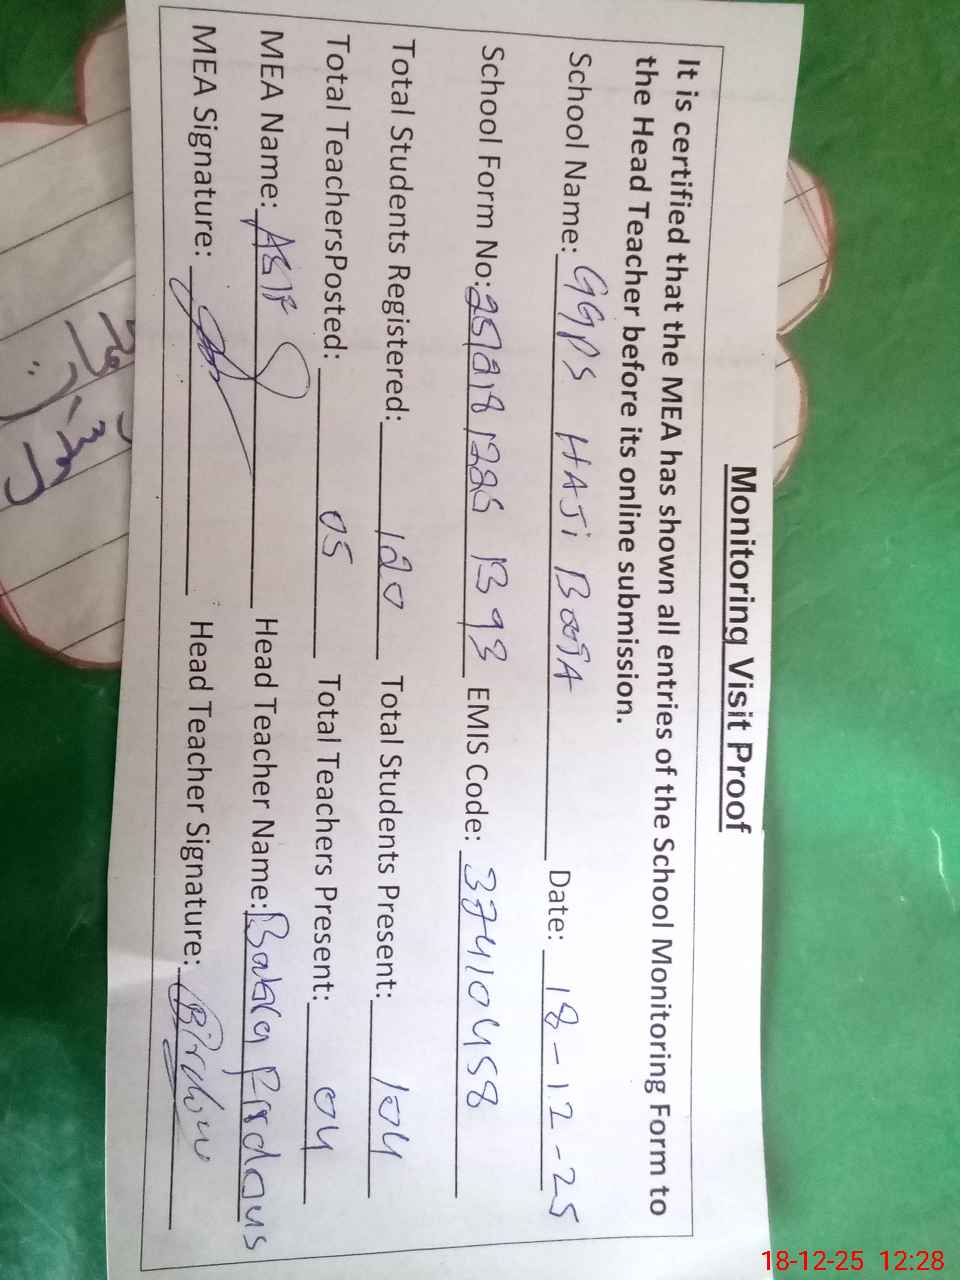 Monitoring Visit Proof
It is certified that the MEA has shown all entries of the School Monitoring Form to
the Head Teacher before its online submission.
School Name: GGPS HAJi Date: 18-12-25
School Form No: EMIS Code: 37410458
Total Students Registered: 120 Total Students Present: 104
Total TeachersPosted: 05 Total Teachers Present: 04
MEA Name: ASIF Head Teacher Name: Firdous
MEA Signature: Head Teacher Signature:
18-12-25 12:28